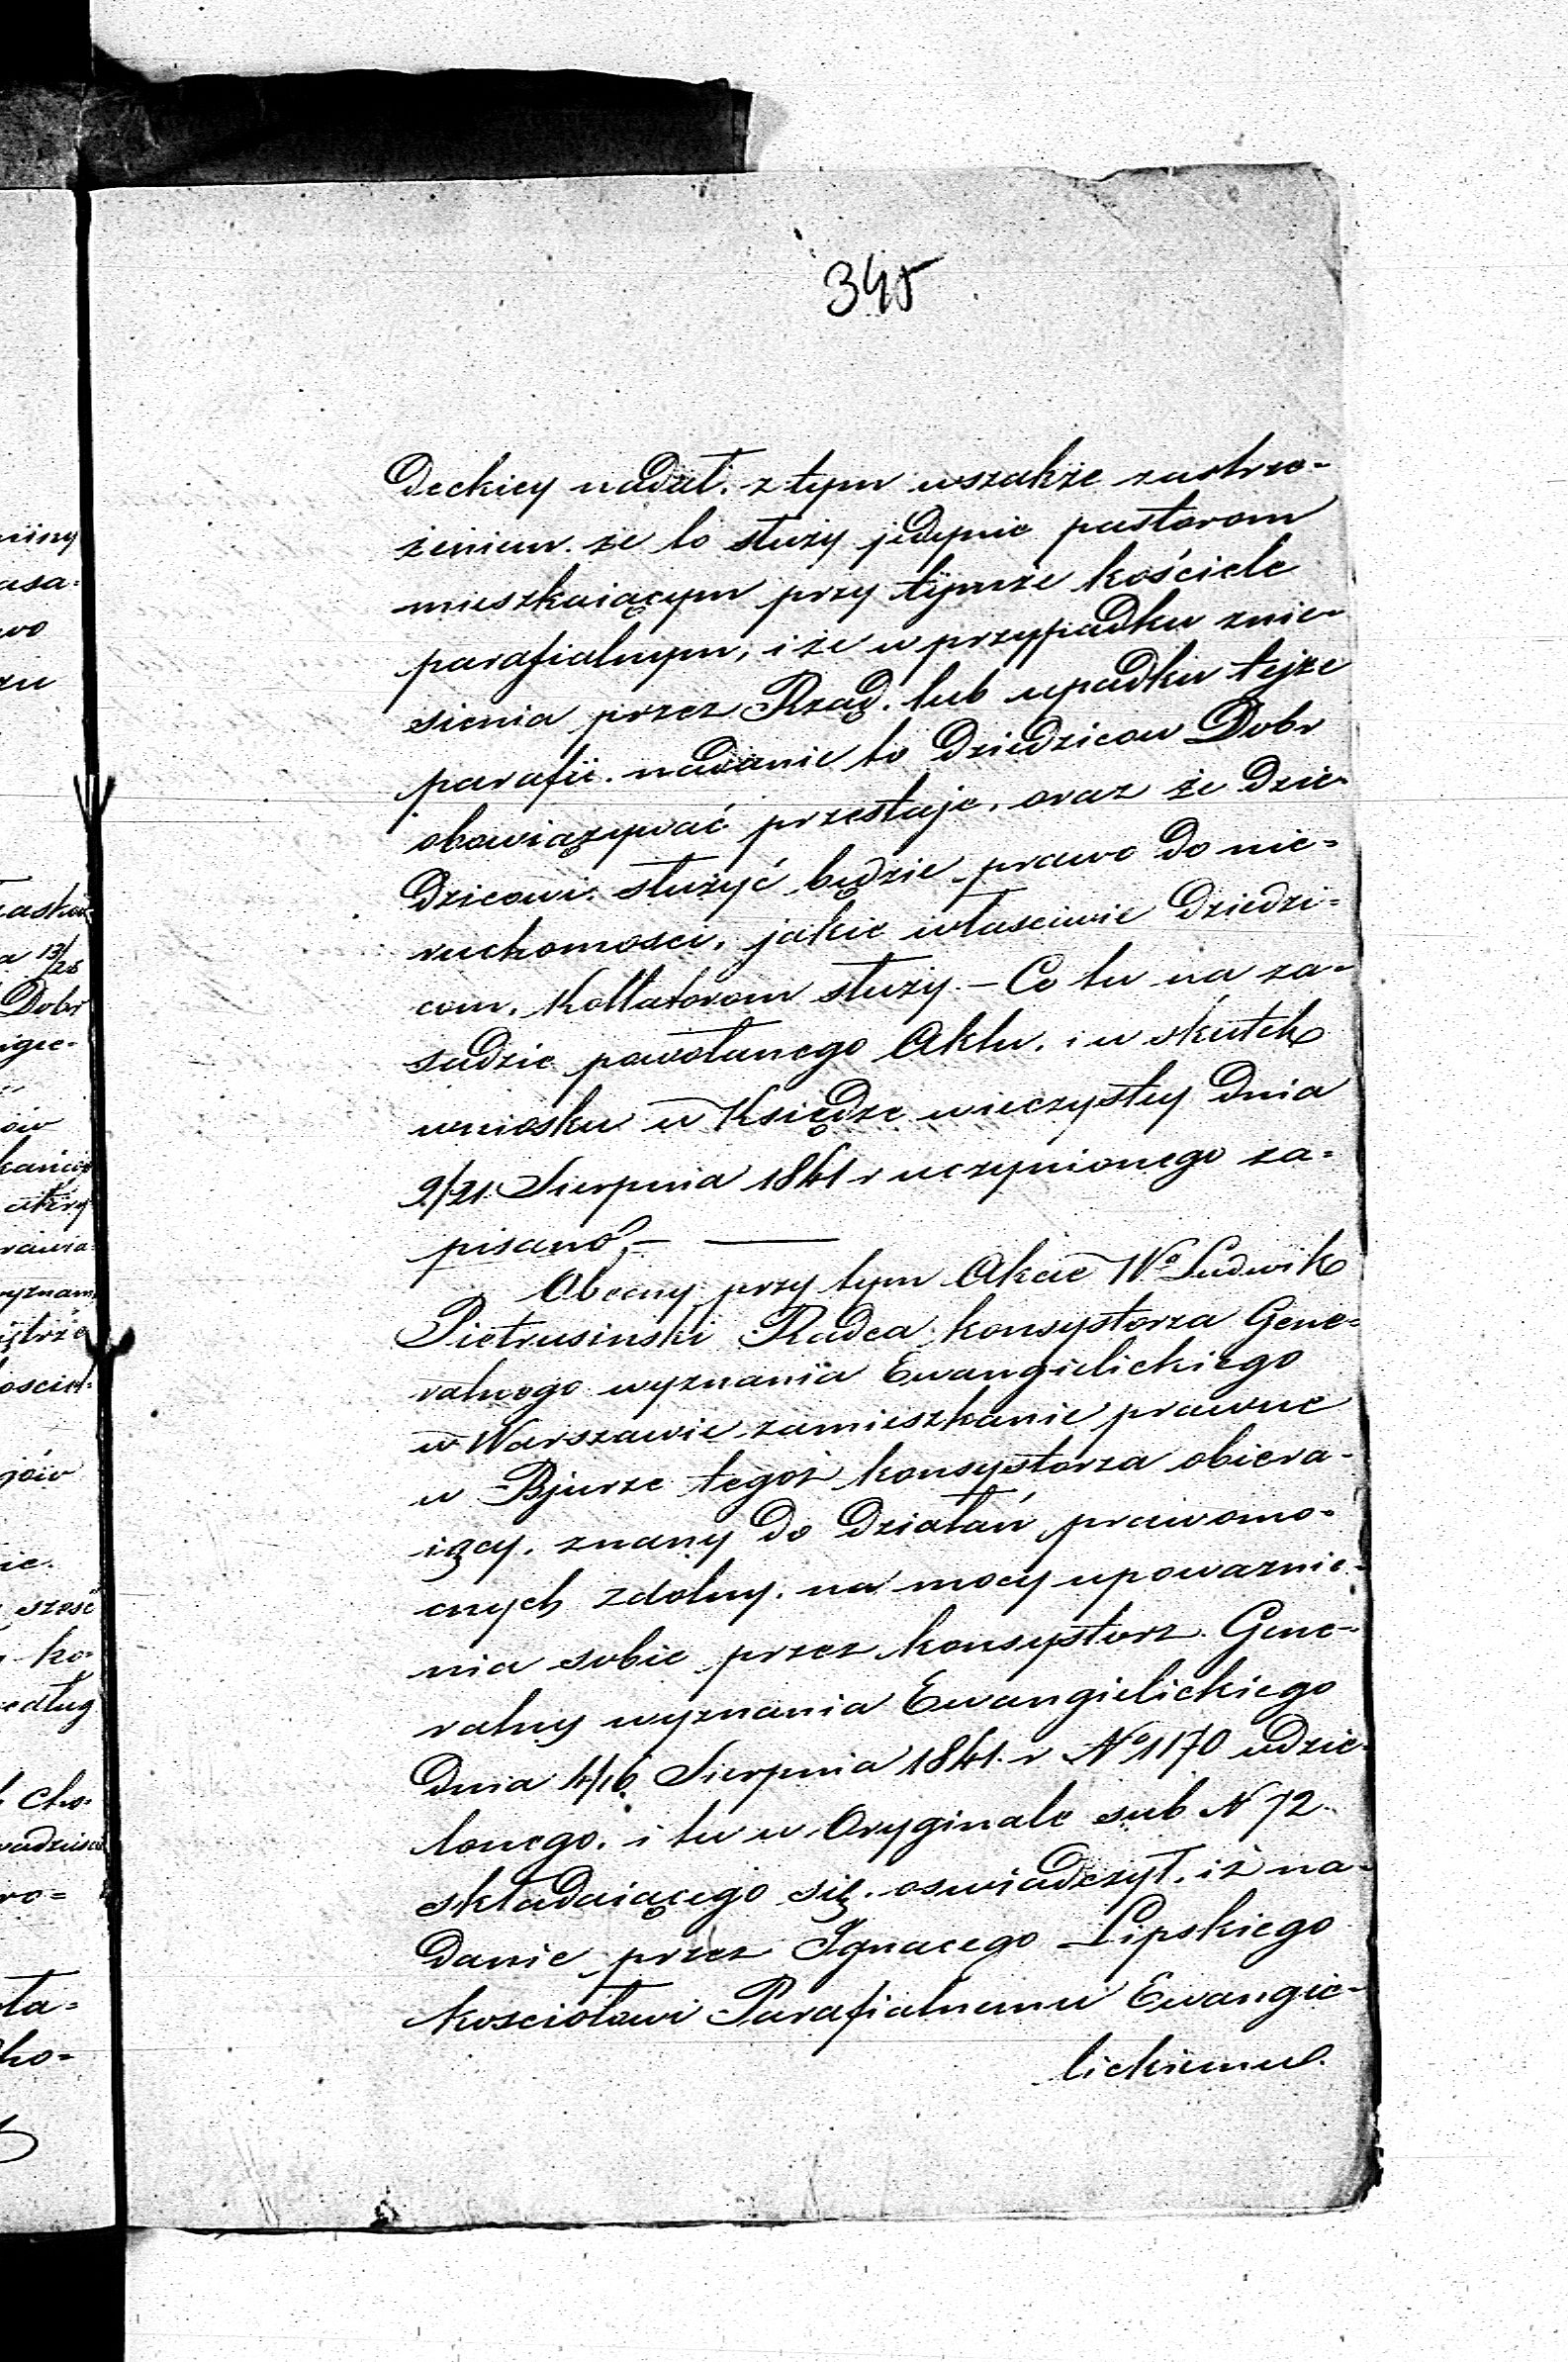 345
deckiey nadał. z tym wszakże zastrze-
żeniem. że to służy jedynie pastorom
mieszkaiącym przy tymże kościele
parafialnym, i że w przypadku znie-
sienia przez Rząd. lub upadku tejże
parafii. nadanie to dziedziców Dobr
obowiązywać przestaje. oraz że dzie-
dzicowi. służyć będzie prawo do nie-
ruchomosci, jakie własciwie dziedzi-
com. Kollatorom służy. – Co tu na za-
sadzie powołanego Aktu. i w skutek
wniosku w Księdze wieczystey dnia
9/21 Sierpnia 1841 r uczynionego za-
pisano, –
Obecny przy tym Akcie Wº Ludwik
Pietrusinski Radca konsystorza Gene-
ralnego wyznania Ewangielickiego
w Warszawie zamieszkanie prawne
w Bjurze tegoż konsystorza obiera-
iący. znany do działań prawomo-
cnych zdolny. na mocy upowaznie-
nia sobie przez konsystorz Gene-
ralny wyznania Ewangielickiego
dnia 4/16 Sierpnia 1841. r Nº 1170 udzie-
lonego. i tu w Oryginale sub N 72
składaiącego się. oswiadczył. iż na-
danie przez Ignacego Lipskiego
kosciołowi Parafialnemu Ewangie-
lickiemu.
miny
asa-
wo
zu
a 13/25
Dobr
igie-
ów
rawia-
wyznam
gów
ie.
szesć
ko-
edług
Cho-
ro-
ta-
ho-